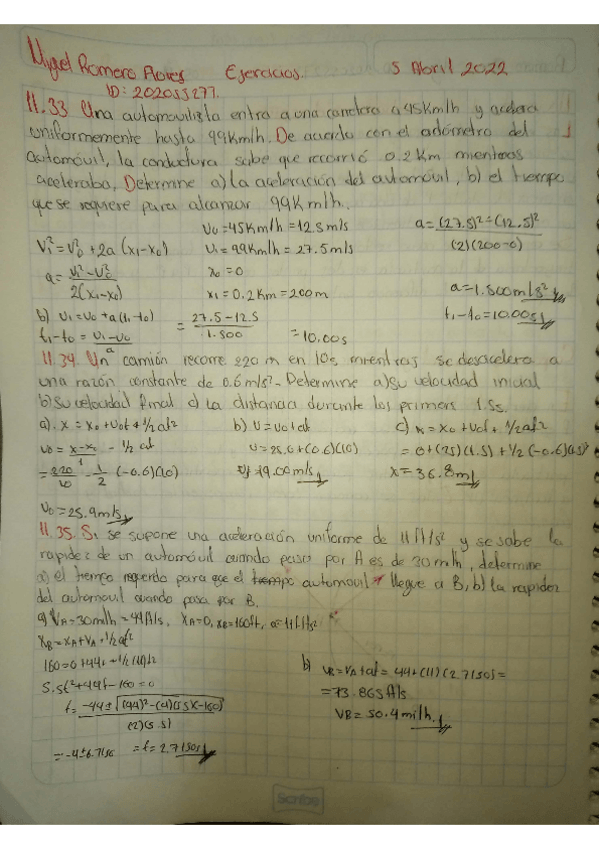 Miguel Romero Flores Ejercicios. 5 Abril 2022
ID: 202053277.
11.33 Una automovilista entra a una carretera a 45Km/h y acelera
uniformemente hasta 99Km/h. De acuerdo con el odómetro del
automóvil, la conductora sabe que recorrió 0.2 Km mientras
aceleraba, Determine a) la aceleración del automovil, b) el tiempo
que se requiere para alcanzar 99Km/h.
V₀=45Km/h=12.5m/s
V₁=99Km/h=27.5m/s
x₀=0
x₁=0.2Km=200m
V₁²=V₀²+2a(x₁-x₀)
a=V₁²-V₀²
2(x₁-x₀)
a=(27.5)²-(12.5)²
(2)(200-0)
a=1.500m/s²
b) V₁=V₀+a(t₁-t₀)
t₁-t₀=V₁-V₀
a
=27.5-12.5
1.500
=10.00s
t₁-t₀=10.00s
11.34. Un camión recorre 220 m en 10s mientras se desacelera a
una razón constante de 0.6m/s². Determine a) su velocidad inicial
b) su velocidad final c) la distancia durante los primeros 1.5s.
a). x=x₀+v₀t+1/2at²
v₀=x-x₀ -1/2at
t
=220 -1 (-0.6)(10)
10 2
V₀=25.9m/s
b) V=V₀+at
V=25.0+(0.6)(10)
19.00m/s
c) x=x₀+v₀t+1/2at²
=0+(25)(1.5)+1/2(-0.6)(1.5)²
x=36.8m
11.35. Si se supone una aceleración uniforme de 11ft/s² y se sabe la
rapidez de un automovil cuando pasa por A es de 30m/h, determine
a) el tiempo requerido para que el tiempo automovil llegue a B, b) la rapidez
del automovil cuando pasa por B.
a) VA=30mi/h=44ft/s, XA=0, XB=160ft, a=11ft/s²
XB=XA+VA+1/2at²
160=0+44t+1/2(11)t²
5.5t²+44t-160=0
t=-44±√(44)²-(4)(5.5)(-160)
(2)(5.5)
=-4±6.7150 =t=2.7150s
b) VB=VA+at=44+(11)(2.7150)=
=73.865ft/s
VB=50.4mi/h.
Scribe